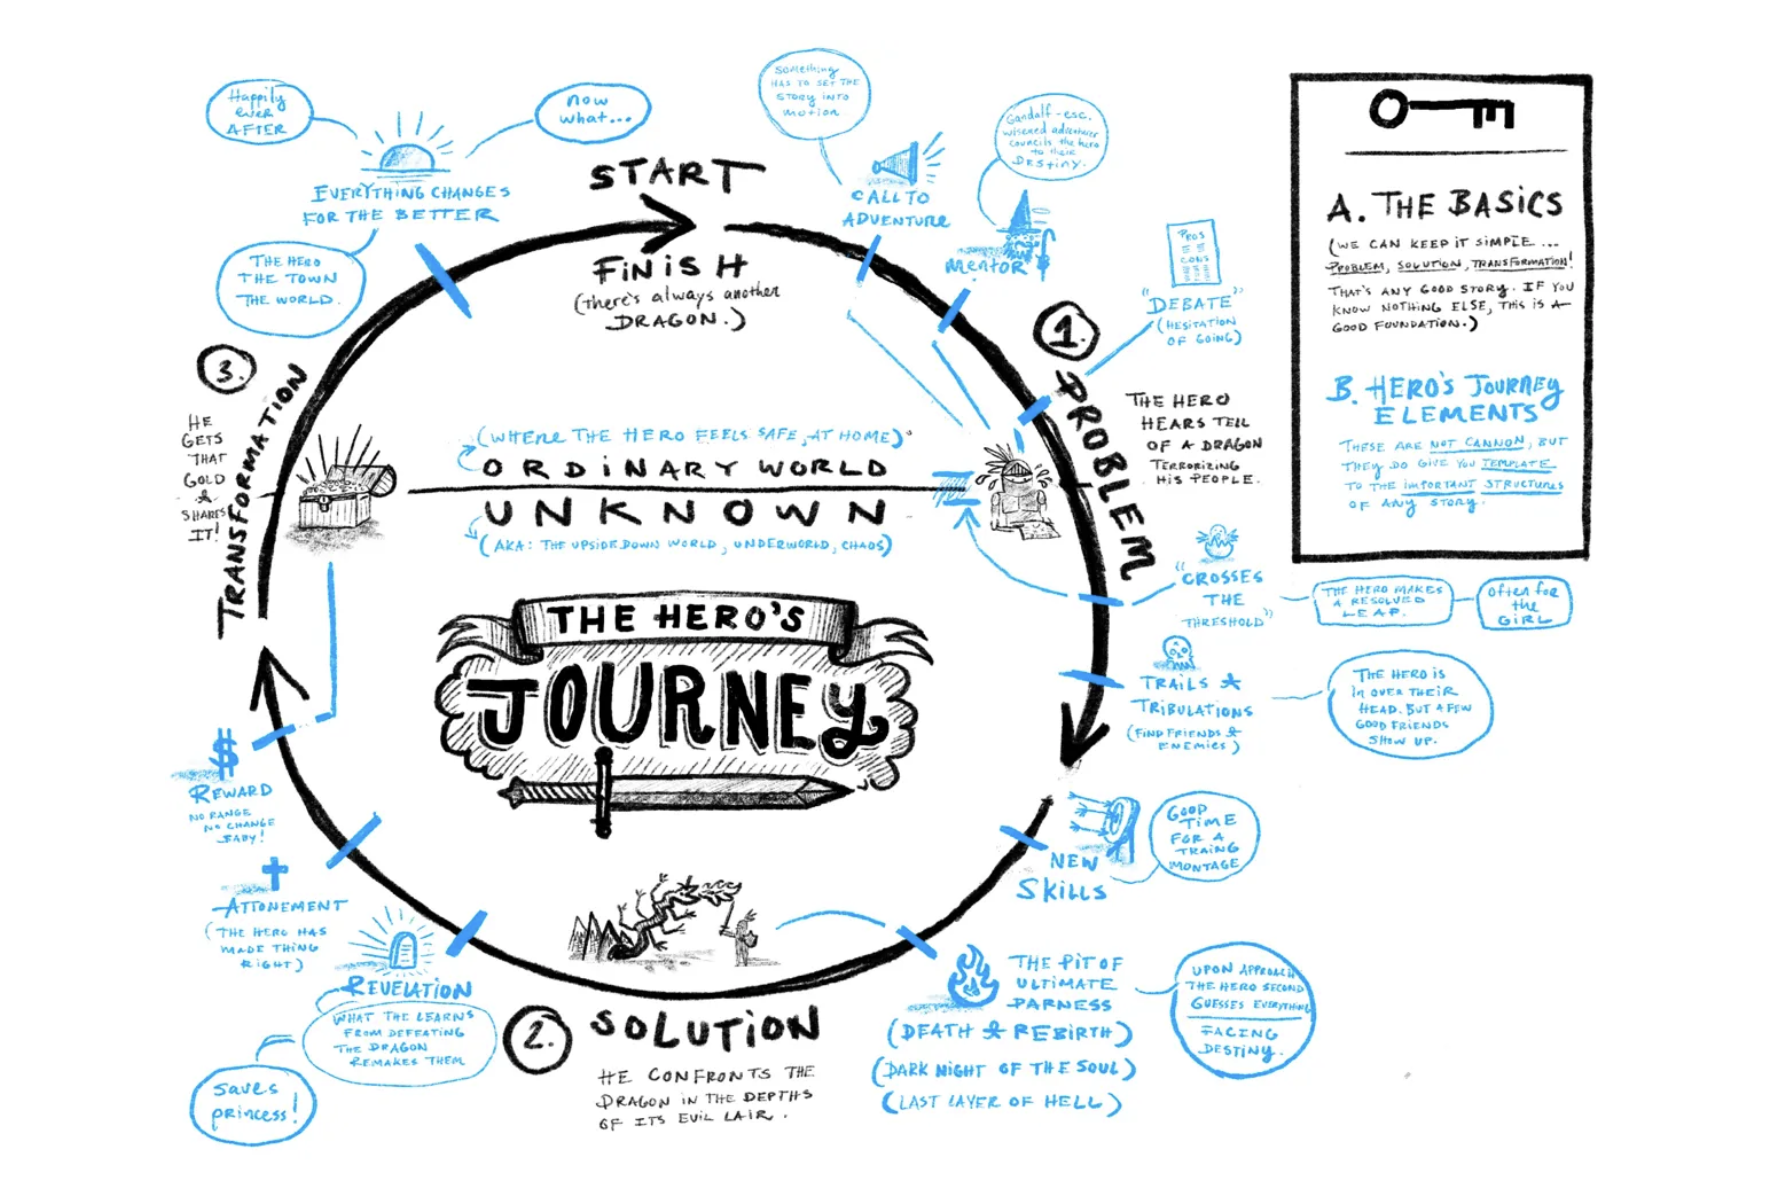 START
FINISH
(there's always another
DRAGON.)
Something
HAS TO SET THE
STORY INTO
motion
CALL TO
ADVENTURE
Gandalf-esc.
wisened adventurer
councils the hero
to their
DESTINY.
mentor
PROS
CONS
"DEBATE"
(HESITATION
OF GOING)
1.
PROBLEM
THE HERO
HEARS TELL
OF A DRAGON
TERRORIZING
HIS PEOPLE.
"CROSSES
THE
THRESHOLD"
THE HERO MAKES
A RESOLVED
LEAP.
often for
the
GIRL
TRAILS &
TRIBULATIONS
(FIND FRIENDS &
ENEMIES)
THE HERO IS
IN OVER THEIR
HEAD. BUT A FEW
GOOD FRIENDS
SHOW UP.
NEW
SKILLS
GOOD
TIME
FOR A
TRAING
MONTAGE
THE PIT OF
ULTIMATE
DARNESS
(DEATH & REBIRTH)
(DARK NIGHT OF THE SOUL)
(LAST LAYER OF HELL)
UPON APPROACH
THE HERO SECOND
GUESSES EVERYTHING
FACING
DESTINY.
2.
SOLUTION
HE CONFRONTS THE
DRAGON IN THE DEPTHS
OF ITS EVIL LAIR.
REVELATION
WHAT THE LEARNS
FROM DEFEATING
THE DRAGON
REMAKES THEM
saves
princess!
ATTONEMENT
(THE HERO HAS
MADE THING
RIGHT)
$
REWARD
NO RANGE
NO CHANGE
BABY!
3.
TRANSFORMATION
HE
GETS
THAT
GOLD
&
SHARES
IT!
EVERYTHING CHANGES
FOR THE BETTER
Happily
ever
AFTER
now
what...
THE HERO
THE TOWN
THE WORLD.
(WHERE THE HERO FEELS SAFE, AT HOME)
ORDINARY WORLD
UNKNOWN
(AKA: THE UPSIDEDOWN WORLD, UNDERWORLD, CHAOS)
THE HERO'S
JOURNEY
A. THE BASICS
(WE CAN KEEP IT SIMPLE...
PROBLEM, SOLUTION, TRANSFORMATION!
THAT'S ANY GOOD STORY. IF YOU
KNOW NOTHING ELSE, THIS IS A
GOOD FOUNDATION.)
B. HERO'S JOURNEY
ELEMENTS
THESE ARE NOT CANNON, BUT
THEY DO GIVE YOU TEMPLATE
TO THE IMPORTANT STRUCTURES
OF ANY STORY.